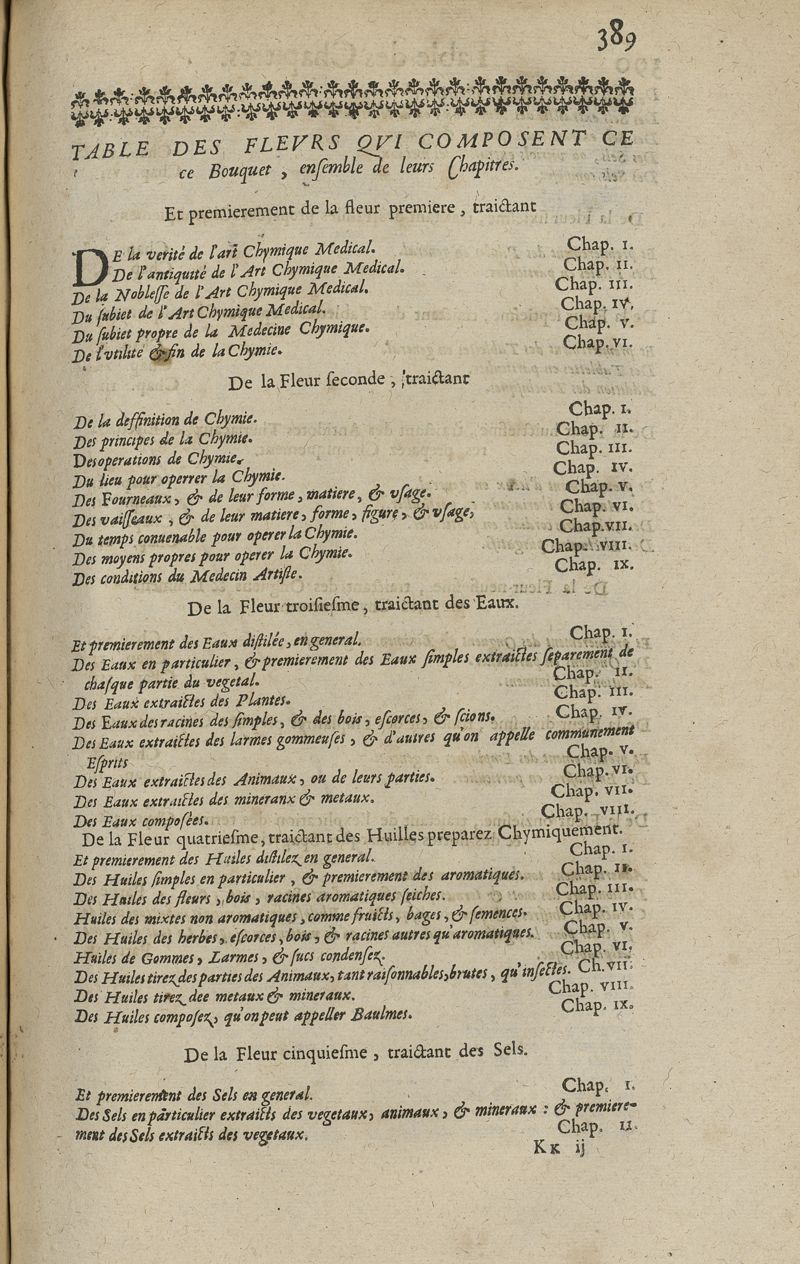 389
TABLE DES FLEVRS QVI COMPOSENT CE
ce Bouquet, enſemble de leurs Chapitres.
Et premierement de la fleur premiere, traictant
DE la verité de l'art Chymique Medical. Chap. I.
De l'antiquité de l'Art Chymique Medical. Chap. II.
De la Nobleſſe de l'Art Chymique Medical. Chap. III.
Du ſubiet de l'Art Chymique Medical. Chap. IV.
Du ſubiet propre de la Medecine Chymique. Chap. V.
De l'vtilité & fin de la Chymie. Chap. VI.
De la Fleur ſeconde, traictant
De la deffinition de Chymie. Chap. I.
Des principes de la Chymie. Chap. II.
Des operations de Chymie. Chap. III.
Du lieu pour operrer la Chymie. Chap. IV.
Des Fourneaux, & de leur forme, matiere, & vſage. Chap. V.
Des vaiſſeaux, & de leur matiere, forme, figure, & vſage, Chap. VI.
Du temps conuenable pour operer la Chymie. Chap. VII.
Des moyens propres pour operer la Chymie. Chap. VIII.
Des conditions du Medecin Artiſte. Chap. IX.
De la Fleur troiſieſme, traictant des Eaux.
Et premierement des Eaux diſtilée, en general. Chap. I.
Des Eaux en particulier, & premierement des Eaux ſimples extraictes ſeparement de
chaſque partie du vegetal. Chap. II.
Des Eaux extraictes des Plantes. Chap. III.
Des Eaux des racines des ſimples, & des bois, eſcorces, & ſcions. Chap. IV.
Des Eaux extraictes des larmes gommeuſes, & d'autres qu'on appelle communement
Eſprits Chap. V.
Des Eaux extraictes des Animaux, ou de leurs parties. Chap. VI.
Des Eaux extraictes des mineranx & metaux. Chap. VII.
Des Eaux compoſées. Chap. VIII.
De la Fleur quatrieſme, traictant des Huilles preparez Chymiquement.
Et premierement des Huiles diſtilez en general. Chap. I.
Des Huiles ſimples en particulier, & premierement des aromatiques. Chap. II.
Des Huiles des fleurs, bois, racines aromatiques ſeiches. Chap. III.
Huiles des mixtes non aromatiques, comme fruicts, bages, & ſemences. Chap. IV.
Des Huiles des herbes, eſcorces, bois, & racines autres qu'aromatiques. Chap. V.
Huiles de Gommes, Larmes, & ſucs condenſez. Chap. VI.
Des Huiles tirez des parties des Animaux, tant raiſonnables, brutes, qu'inſectes. Ch. VII.
Des Huiles tirez dee metaux & mineraux. Chap. VIII.
Des Huiles compoſez, qu'on peut appeller Baulmes. Chap. IX.
De la Fleur cinquieſme, traictant des Sels.
Et premierement des Sels en general. Chap. I.
Des Sels en particulier extraicts des vegetaux, animaux, & mineraux : & premiere-
ment des Sels extraicts des vegetaux. Chap. II.
Kk ij